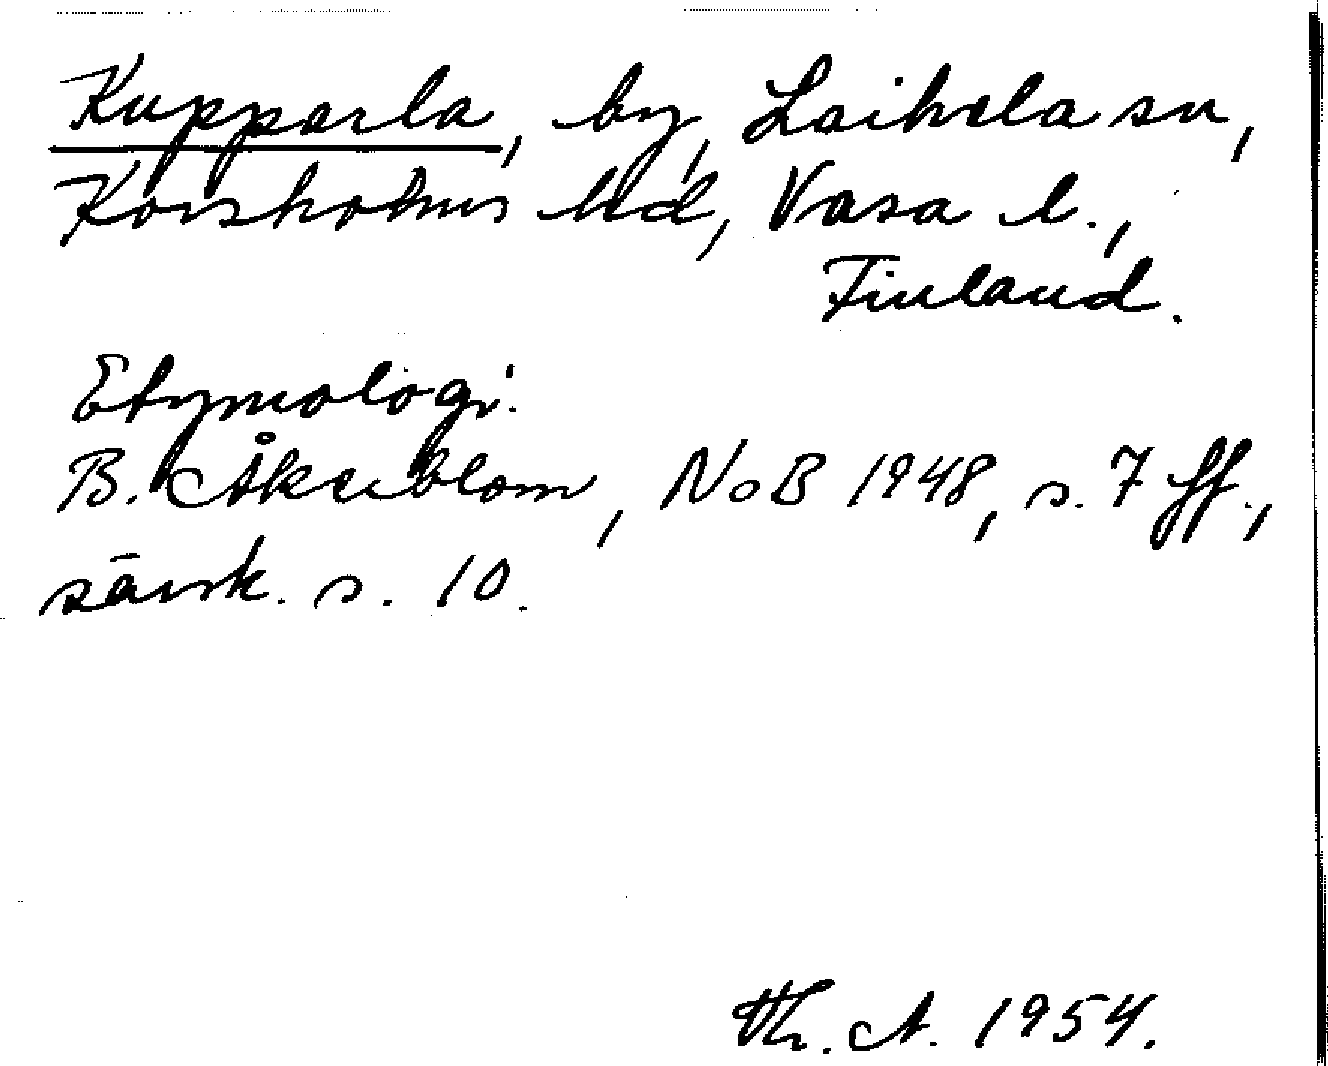 Kupparla, by, Laihela sn,
Korsholms hd, Vasa l.,
Finland.
Etymologi:
B. Åkerblom, NoB 1948, s. 7 ff.,
särsk. s. 10.
Th. A. 1954.